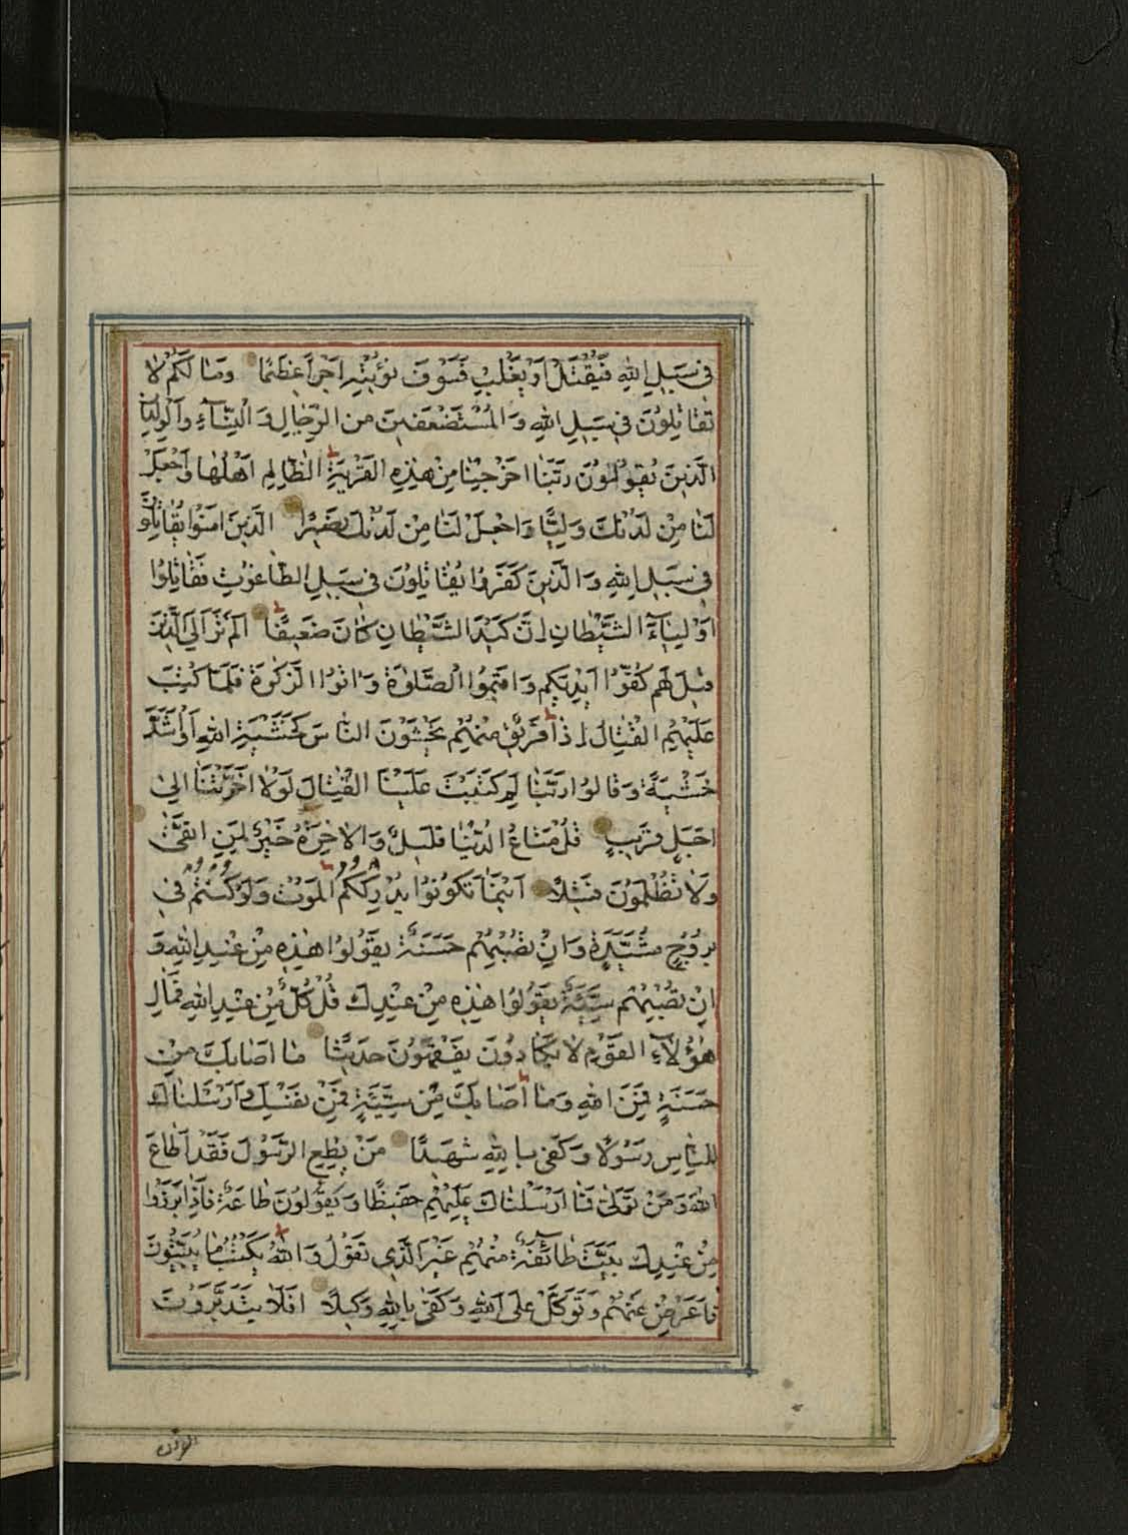 فِى سَبِيلِ اللهِ فَيُقْتَلْ اَوْ يَغْلِبْ فَسَوْفَ نُؤْتِيْهِ اَجْرًا عَظِيْمًا وَمَا لَكُمْ لَا
تُقَاتِلُوْنَ فِى سَبِيْلِ اللهِ وَالْمُسْتَضْعَفِيْنَ مِنَ الرِّجَالِ وَالنِّسَآءِ وَالْوِلْدَانِ
الَّذِيْنَ يَقُوْلُوْنَ رَبَّنَا اَخْرِجْنَا مِنْ هٰذِهِ الْقَرْيَةِ الظَّالِمِ اَهْلُهَا وَاجْعَلْ
لَنَا مِنْ لَدُنْكَ وَلِيًّا وَاجْعَلْ لَنَا مِنْ لَدُنْكَ نَصِيْرًا اَلَّذِيْنَ اٰمَنُوْا يُقَاتِلُوْنَ
فِى سَبِيْلِ اللهِ وَالَّذِيْنَ كَفَرُوْا يُقَاتِلُوْنَ فِى سَبِيْلِ الطَّاغُوْتِ فَقَاتِلُوْا
اَوْلِيَآءَ الشَّيْطَانِ اِنَّ كَيْدَ الشَّيْطَانِ كَانَ ضَعِيْفًا اَلَمْ تَرَ اِلَى الَّذِيْنَ
قِيْلَ لَهُمْ كُفُّوْا اَيْدِيَكُمْ وَاَقِيْمُوا الصَّلٰوةَ وَاٰتُوا الزَّكٰوةَ فَلَمَّا كُتِبَ
عَلَيْهِمُ الْقِتَالُ اِذَا فَرِيْقٌ مِنْهُمْ يَخْشَوْنَ النَّاسَ كَخَشْيَةِ اللهِ اَوْ اَشَدَّ
خَشْيَةً وَقَالُوْا رَبَّنَا لِمَ كَتَبْتَ عَلَيْنَا الْقِتَالَ لَوْلَا اَخَّرْتَنَا اِلٰى
اَجَلٍ قَرِيْبٍ قُلْ مَتَاعُ الدُّنْيَا قَلِيْلٌ وَالْاٰخِرَةُ خَيْرٌ لِمَنِ اتَّقٰى
وَلَا تُظْلَمُوْنَ فَتِيْلًا اَيْنَمَا تَكُوْنُوْا يُدْرِكْكُمُ الْمَوْتُ وَلَوْ كُنْتُمْ فِى
بُرُوْجٍ مُشَيَّدَةٍ وَاِنْ تُصِبْهُمْ حَسَنَةٌ يَقُوْلُوْا هٰذِهِ مِنْ عِنْدِ اللهِ وَ
اِنْ تُصِبْهُمْ سَيِّئَةٌ يَقُوْلُوْا هٰذِهِ مِنْ عِنْدِكَ قُلْ كُلٌّ مِنْ عِنْدِ اللهِ فَمَالِ
هٰؤُلَآءِ الْقَوْمِ لَا يَكَادُوْنَ يَفْقَهُوْنَ حَدِيْثًا مَا اَصَابَكَ مِنْ
حَسَنَةٍ فَمِنَ اللهِ وَمَا اَصَابَكَ مِنْ سَيِّئَةٍ فَمِنْ نَفْسِكَ وَاَرْسَلْنَاكَ
لِلنَّاسِ رَسُوْلًا وَكَفٰى بِاللهِ شَهِيْدًا مَنْ يُطِعِ الرَّسُوْلَ فَقَدْ اَطَاعَ
اللهَ وَمَنْ تَوَلّٰى فَمَا اَرْسَلْنَاكَ عَلَيْهِمْ حَفِيْظًا وَيَقُوْلُوْنَ طَاعَةٌ فَاِذَا بَرَزُوْا
مِنْ عِنْدِكَ بَيَّتَ طَآئِفَةٌ مِنْهُمْ غَيْرَ الَّذِى تَقُوْلُ وَاللهُ يَكْتُبُ مَا يُبَيِّتُوْنَ
فَاَعْرِضْ عَنْهُمْ وَتَوَكَّلْ عَلَى اللهِ وَكَفٰى بِاللهِ وَكِيْلًا اَفَلَا يَتَدَبَّرُوْنَ
القرآن